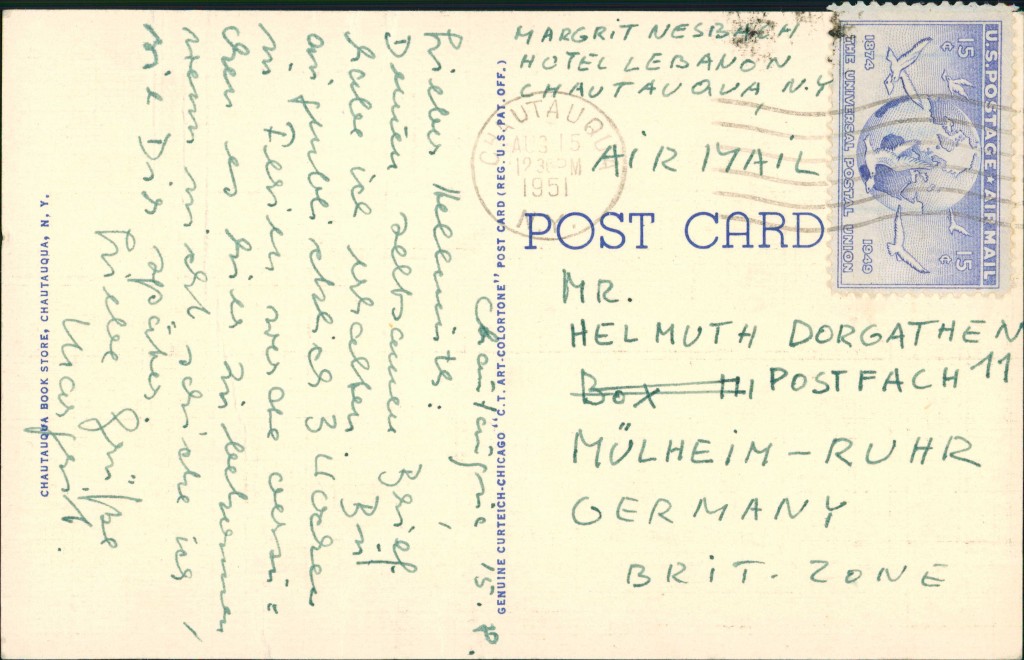 MARGRIT NESIBACH
HOTEL LEBANON
CHAUTAUQUA, N.Y.
AIR MAIL
CHAUTAUQUA
AUG 15
12 30 PM
1951
N.Y.
U.S. POSTAGE - AIR MAIL
15¢
15¢
1874 THE UNIVERSAL POSTAL UNION 1949
POST CARD
MR.
HELMUTH DORGATHEN
Box 111, POSTFACH 11
MÜLHEIM - RUHR
GERMANY
BRIT. ZONE
GENUINE CURTEICH-CHICAGO "C.T. ART-COLORTONE" POST CARD (REG. U.S. PAT. OFF.)
15. 8.
Lieber Hellmuth:
Deinen seltsamen Brief
habe ich erhalten. Bin
augenblicklich 3 Wochen
in Ferien werde versu=
chen es hier zu bekommen
wenn nicht schicke ich,
Dir später
Liebe Grüße
Margrit.
CHAUTAUQUA BOOK STORE, CHAUTAUQUA, N. Y.